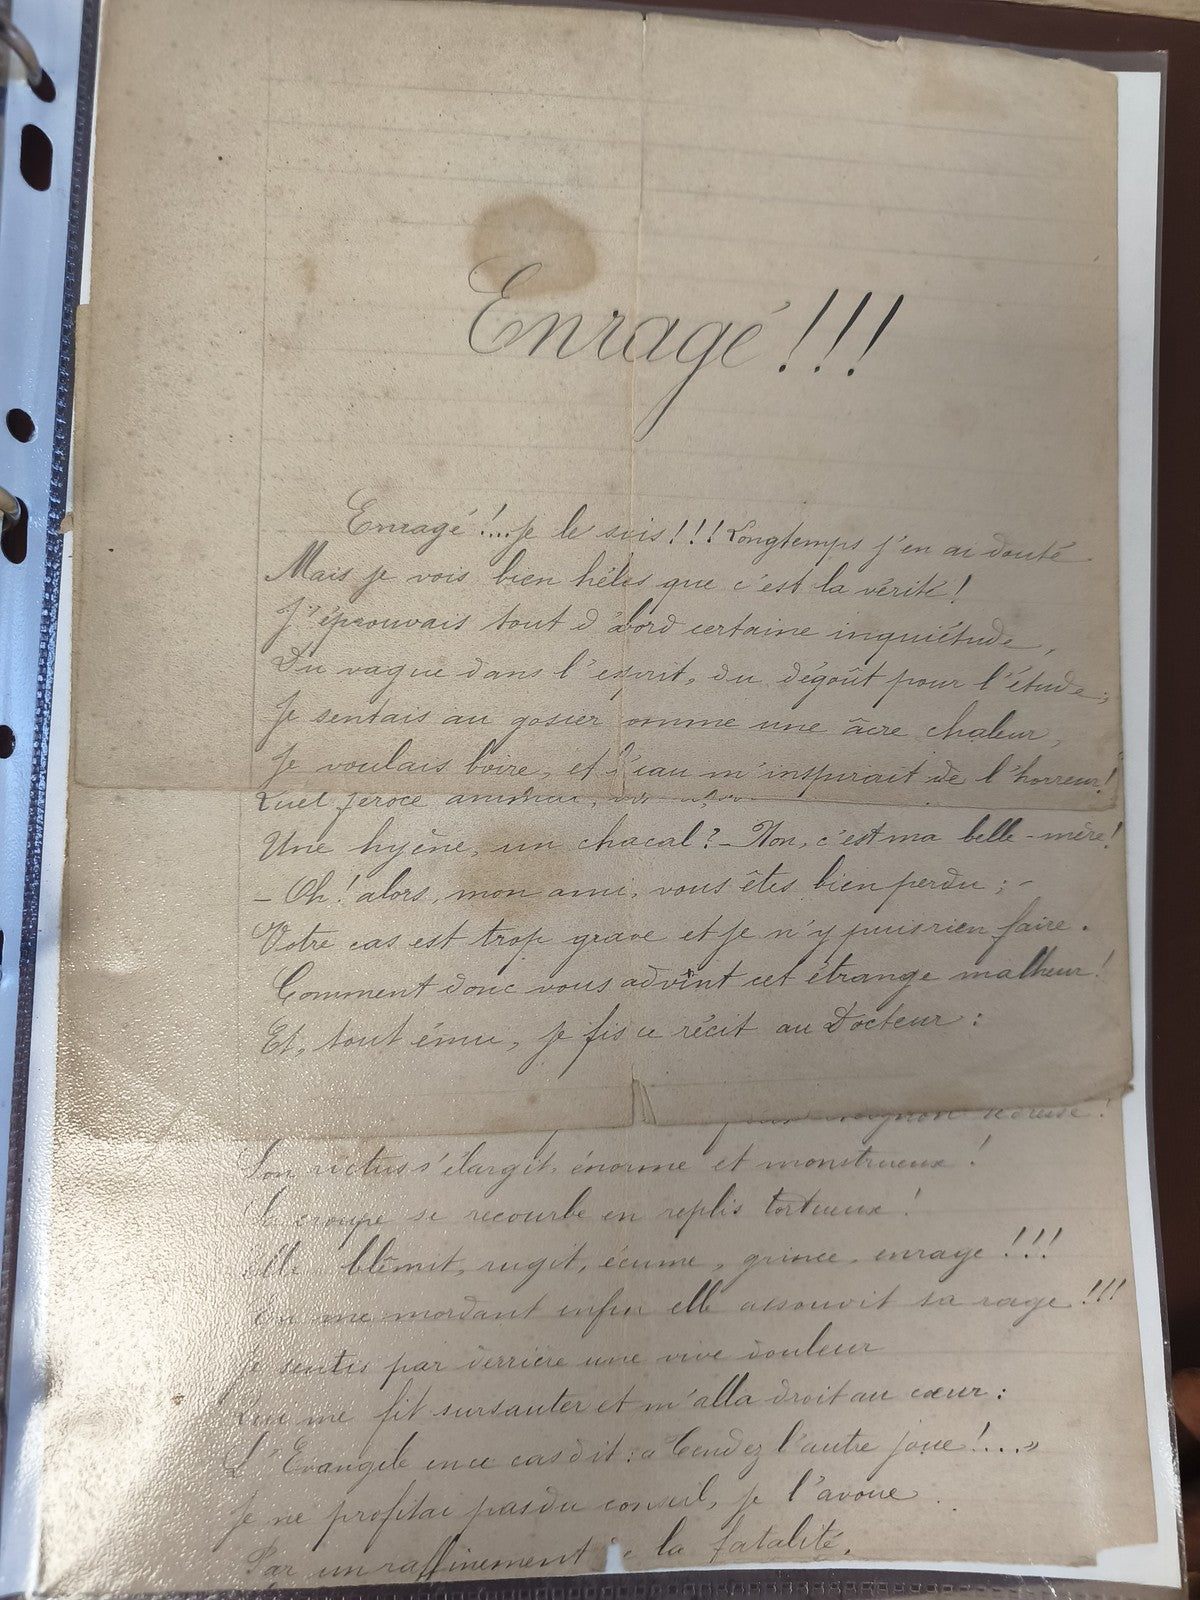 Enragé!!!
Enragé!... Je le suis!!! Longtemps j'en ai douté
Mais je vois bien hélas que c'est la vérité!
J'éprouvais tout d'abord certaine inquiétude,
Du vague dans l'esprit, du dégoût pour l'étude;
Je sentais au gosier comme une âcre chaleur,
Je voulais boire, et l'eau m'inspirait de l'horreur!
Quel féroce animal,
Une hyène, un chacal? - Non, c'est ma belle-mère!
- Oh! alors, mon ami, vous êtes bien perdu; -
Votre cas est trop grave et je n'y puis rien faire.
Comment donc vous advînt cet étrange malheur!
Et, tout ému, je fis ce récit au Docteur:
Son rictus s'élargit, énorme et monstrueux!
Sa croupe se recourbe en replis tortueux!
Elle blêmit, rugit, écume, grince, enrage!!!
En me mordant enfin elle assouvit sa rage!!!
Je sentis par derrière une vive douleur
Qui me fit sursauter et m'alla droit au cœur:
L'Evangile en ce cas dit: « Tendez l'autre joue!... »
Je ne profitai pas du conseil, je l'avoue.
Par un raffinement de la fatalité,